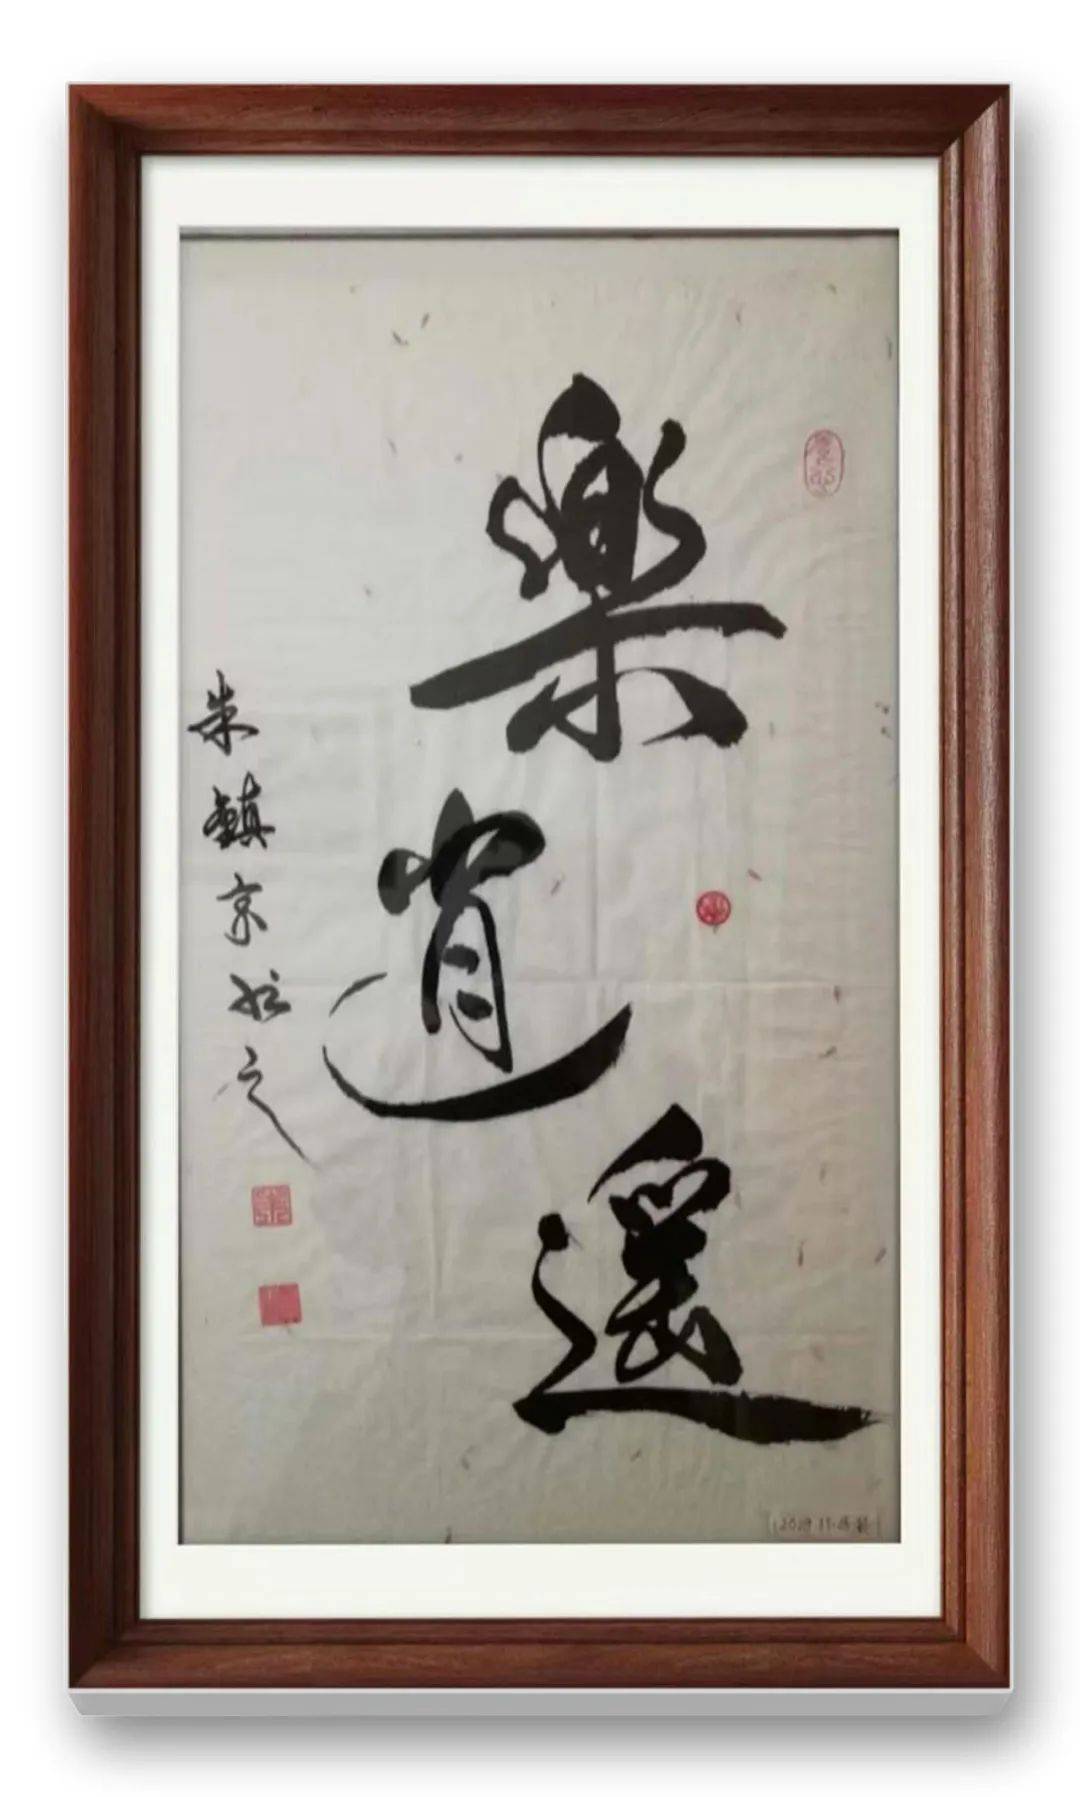 樂逍遥
朱鎮京松之